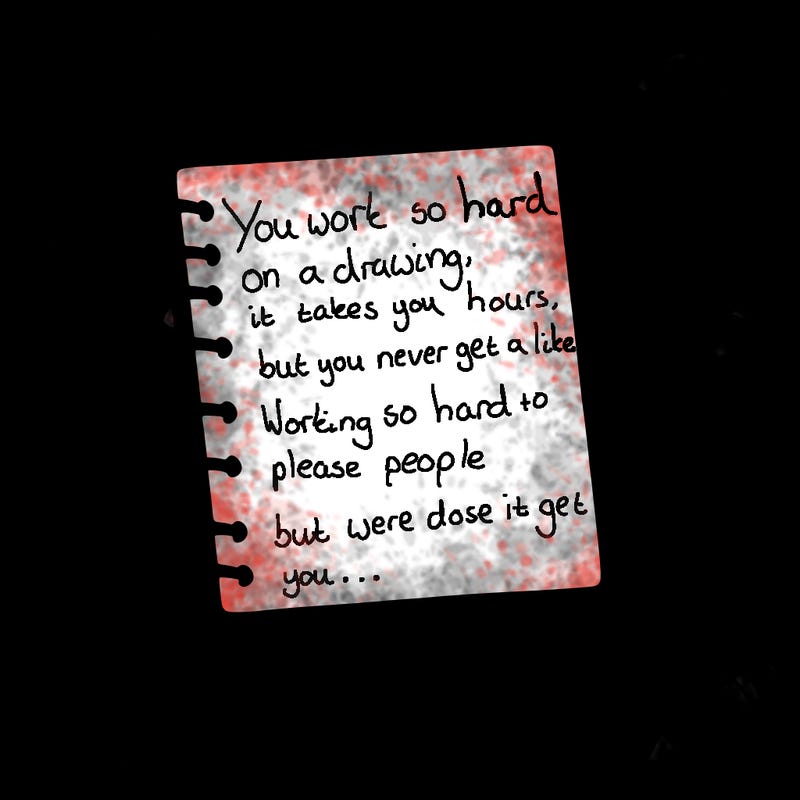 You work so hard
on a drawing,
it takes you hours,
but you never get a like
Working so hard to
please people
but were dose it get
you...